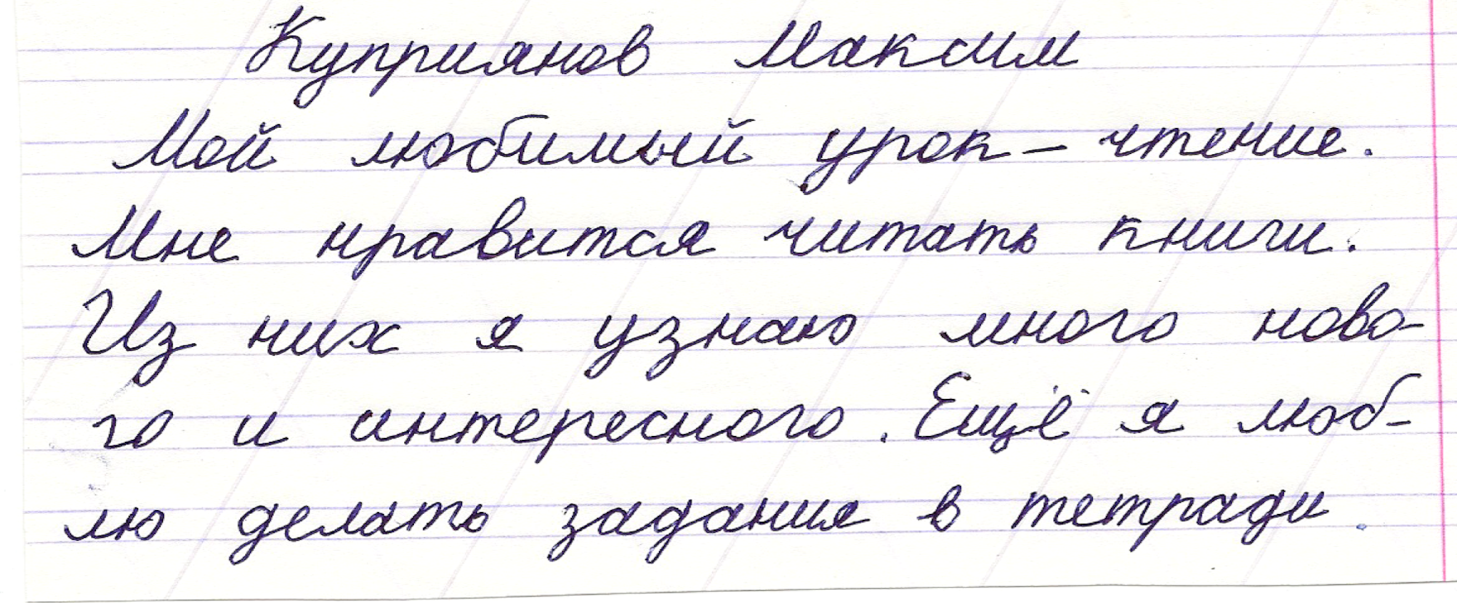 Куприянов Максим
Мой любимый урок – чтение.
Мне нравится читать книги.
Из них я узнаю много ново-
го и интересного. Ещё я люб-
лю делать задания в тетради.